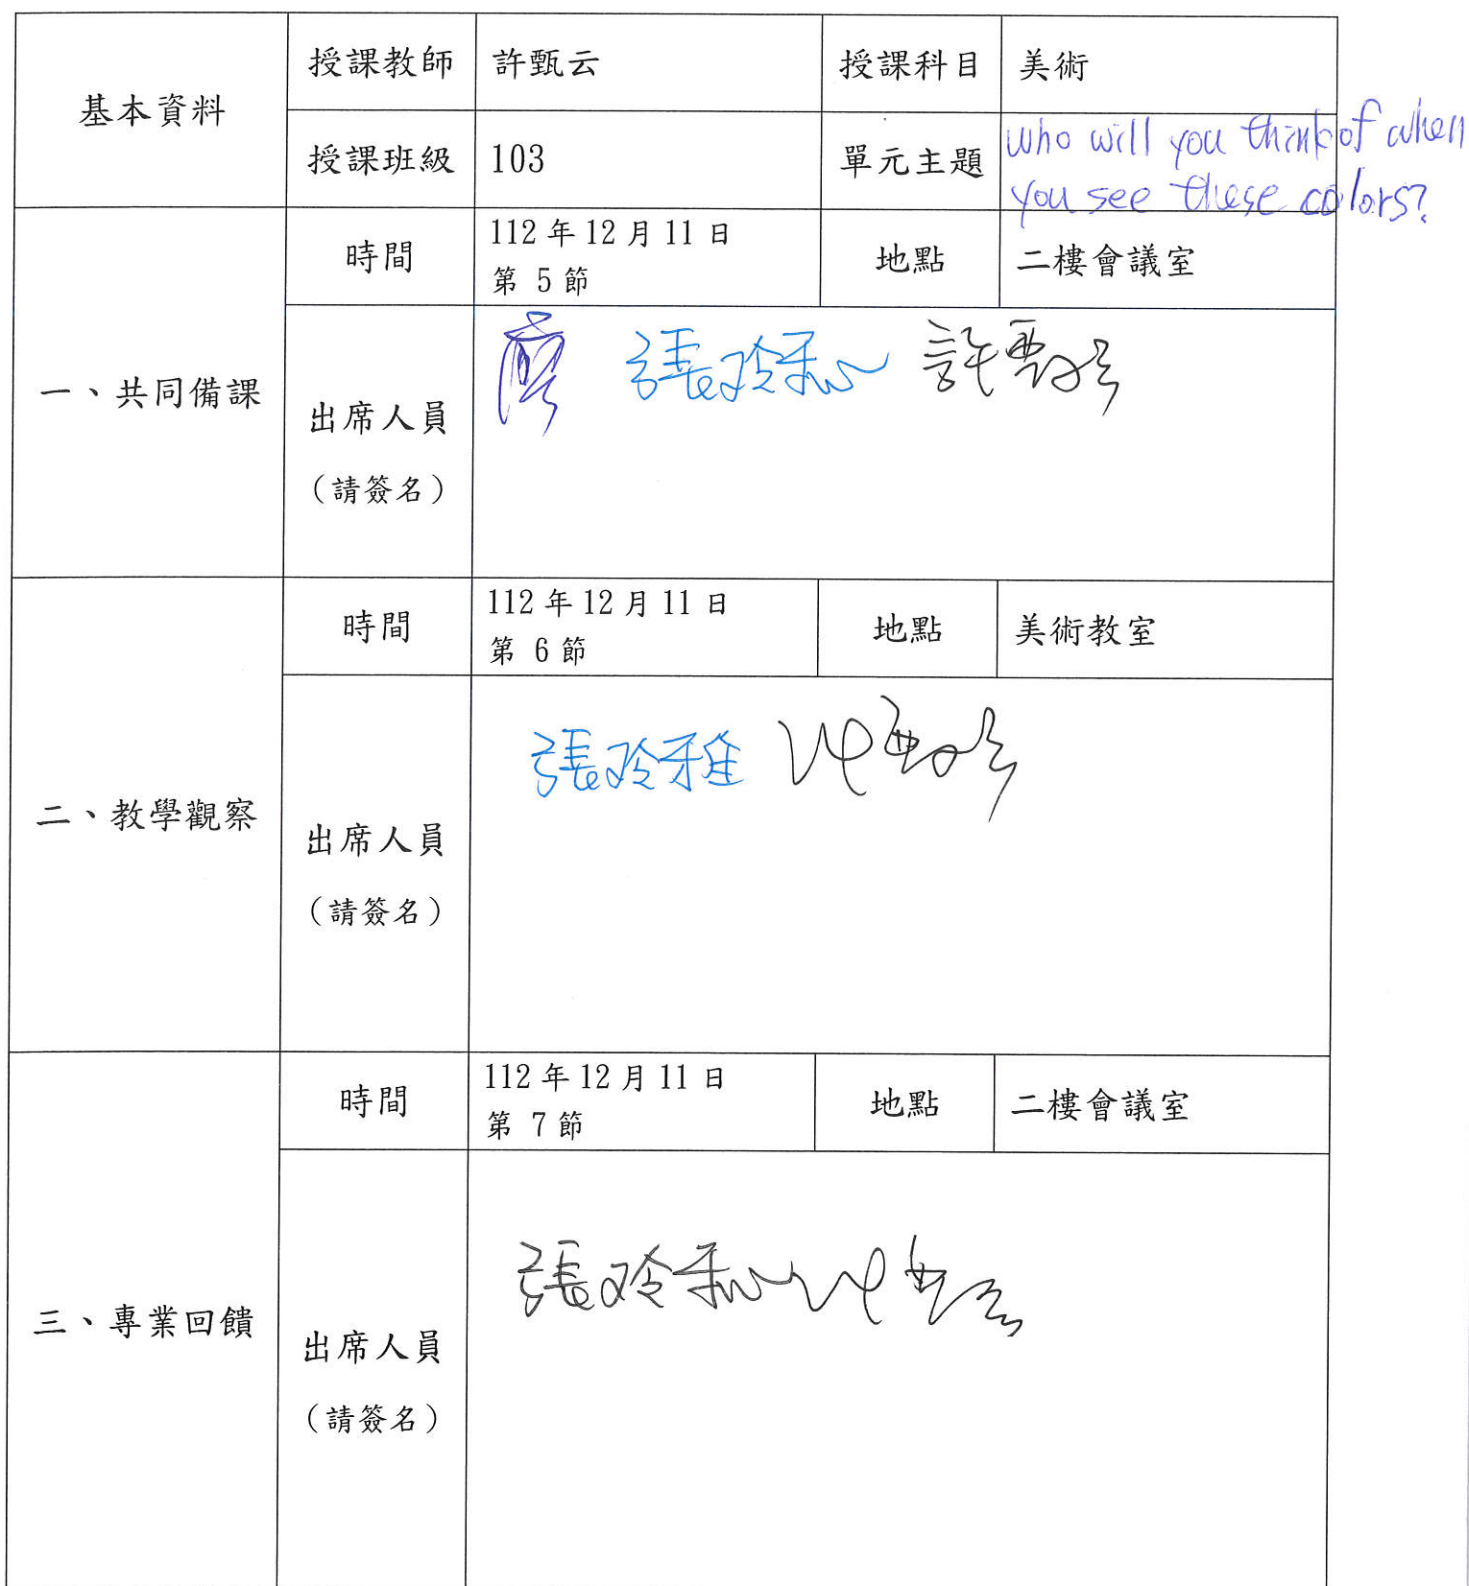 基本資料 授課教師 許甄云 授課科目 美術
授課班級 103 單元主題 who will you think of when
you see these colors?
一、共同備課 時間 112 年 12 月 11 日
第 5 節 地點 二樓會議室
出席人員
（請簽名）
張玲雅 許甄云
二、教學觀察 時間 112 年 12 月 11 日
第 6 節 地點 美術教室
出席人員
（請簽名）
張玲雅 許甄云
三、專業回饋 時間 112 年 12 月 11 日
第 7 節 地點 二樓會議室
出席人員
（請簽名）
張玲雅 許甄云